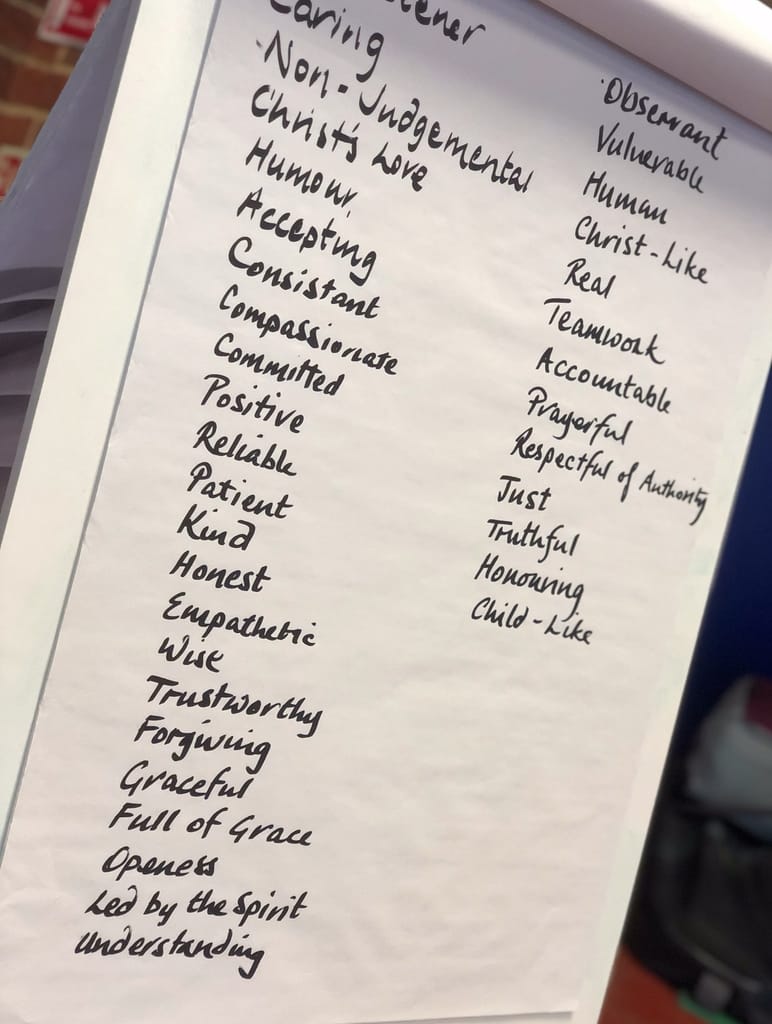 Caring
Non-Judgemental
Christ's Love
Humour
Accepting
Consistant
Compassionate
Committed
Positive
Reliable
Patient
Kind
Honest
Empathetic
Wise
Trustworthy
Forgiving
Graceful
Full of Grace
Openess
Led by the Spirit
Understanding
Observant
Vulnerable
Human
Christ-Like
Real
Teamwork
Accountable
Prayerful
Respectful of Authority
Just
Truthful
Honouring
Child-Like